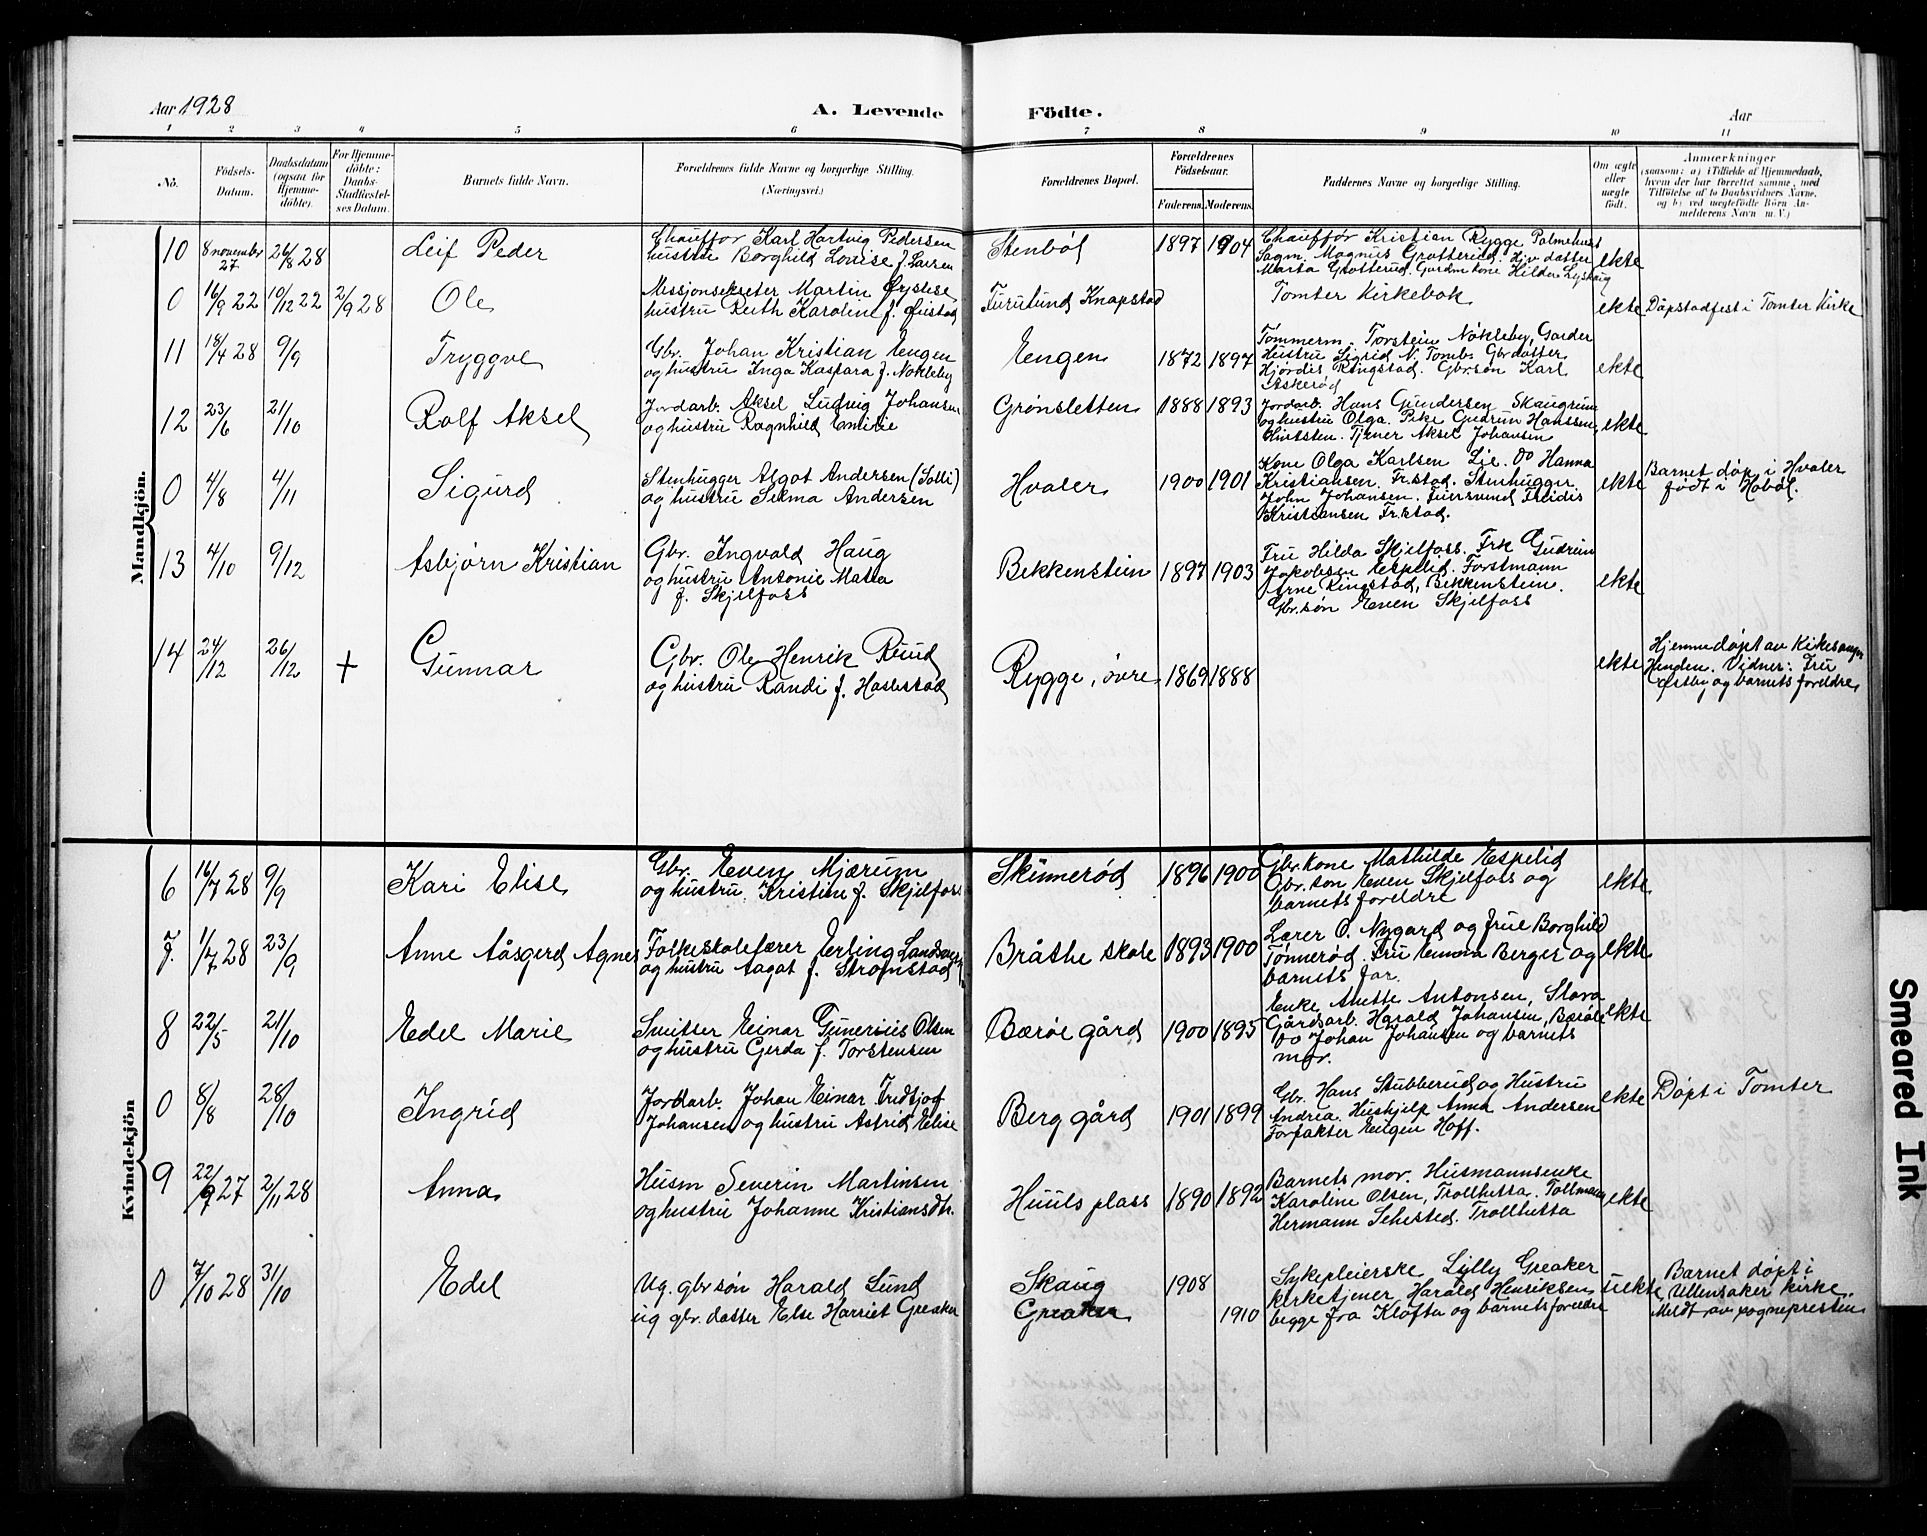 Aar 1928
A. Levende Födte.
Aar
1 2 3 4 5 6 7 8 9 10 11
No.
Födsels-Datum.
Daabsdatum (ogsaa for Hjemme-döbte).
For Hjemme-döbte: Daabs-Stadfæstel-ses Datum.
Barnets fulde Navn.
Forældrenes fulde Navne og borgerlige Stilling. (Næringsvei.)
Forældrenes Bopæl.
Forældrenes Födselsaar.
Faderens. Moderens.
Faddernes Navne og borgerlige Stilling.
Om ægte eller uægte födt.
Anmærkninger
(saasom: a) i Tilfælde af Hjemmedaab,
hvem der har forrettet samme, med
Tilföielse af to Daabsvidners Navne,
og b) ved uægtefödte Börn An-
melderens Navn m. V.)
Mandkjön.
10 8 november 27 26/8 28 Leif Peder
Chauffør Karl Hartvig Pedersen
hustru Borghild Lovise f. Larsen
Stenbøl 1897 1904
Chauffør Kristian Rygge Palmehust
Sagm. Magnus Grøtterud. Hjv. datter
Marta Grøtterud. Gardm kone Hilda Lyshaug
ekte
0 16/9 22 10/12 22 2/9 28 Ole
Missjonsekretær Martin Øystese
hustru Ruth Karoline f.
Furulund Knapstad
Tomter Kirkebok
ekte Døpstadfest i Tomter Kirke
11 18/4 28 9/9 Tryggve
Gbr. Johan Kristian Engen
og hustru Inga Kaspara f. Nøkleby
Engen 1872 1897
Tømmerm. Torstein Nøkleby, Garder
Hustru Sigrid N. Tomb. Gbr datter
Hjørdis Ringstad. Gbr.søn Karl
Askerød
ekte
12 23/6 21/10 Rolf Aksel
Jordarb. Aksel Ludvig Johansen
og hustru Ragnhild Emilie
Grønsletten 1888 1893
Jordarb. Hans Gundersen Skaugrum
og hustru Olga. Pike Gudrun Hanssen,
Tjener Aksel Johansen
ekte
0 4/8 4/11 Sigurd
Stenhugger Algot Andersen (Solli)
og hustru Selma Andersen
Hvaler 1900 1901
Kone Olga Karlsen Lie. Do Hanna
Kristiansen. Fr.stad. Stenhugger
John Johansen.
Kristiansen Fr.stad.
ekte
Barnet døp. i Hvaler
født i Hobøl.
13 4/10 9/12 Asbjørn Kristian
Gbr. Ingvald Haug
og hustru Antonie Matea
f. Skjelfoss
Bekkenstein 1897 1903
Fru Hilda Skjelfoss. Frk Gudrun
Jakobsen Espelid. Forstmann
Arne Ringstad, Bekkenstein.
Gbr.søn Even Skjelfoss
ekte
14 24/12 26/12 + Gunnar
Gbr. Ole Henrik Ruud
og hustru Randi f. Haslestad
Rygge, øvre 1869 1888
ekte
Hjemmedøpt av Kirkesanger
Henden. Vidner: Fru
Østby og barnets foreldre
Kvindekjön
6 16/7 28 9/9 Kari Elise
Gbr. Even Mjærum
og hustru Kristine f. Skjelfoss
Skinnerød 1896 1900
Gbr.kone Mathilde Espelid
Gbr.søn Even Skjelfoss og
barnets foreldre
ekte
7. 1/7 28 23/9 Anne Aasgerd Agnes
Folkeskolelærer Erling Landsverk
og hustru Aagot f. Strømstad
Bråthe skole 1893 1900
Lærer O. Nygard og frue Borghild
Tønnerød. Fru Emma Berger og
barnets far.
ekte
8 22/5 21/10 Edel Marie
Snitter Einar Gunerius Olsen
og hustru Gerda f. Torstensen
Bærøe gård 1900 1895
Enke Anette Antonsen, Slora
Gårdsarb. Harald Johansen, Bærøe
Do Johan Johansen og barnets
mor.
ekte
0 8/8 28/10 Ingrid
Jordarb. Johan Einar Fredtjof
Johansen og hustru Astrid Elise
Berg gård 1901 1899
Gbr. Hans Stubberud og Hustru
Andrea. Hushjelp Anna Andersen
Forpakter Eugen Hoff.
ekte Døpt i Tomter
9 22/9 27 2/11 28 Anna
Husm Severin Martinsen
og hustru Johanne Kristiansdtr.
Huuls plass 1890 1892
Barnets mor. Husmannsenke
Karoline Olsen, Trollhetta. Tollmann
Hermann Sehested. Trollhetta
ekte
0 7/10 28 31/10 Edel
Ug. gbr søn Harald Lund
ug gbr. datter Else Harriet Greaker
Skaug 1908
Greaker 1910
Sykepleierske Lilly Greaker
kirketjener Harald Henriksen
begge fra Kløfta og barnets foreldre
uekte
Barnet døpt i
Ullensaker kirke.
Meldt av sognepresten
Smeared Ink